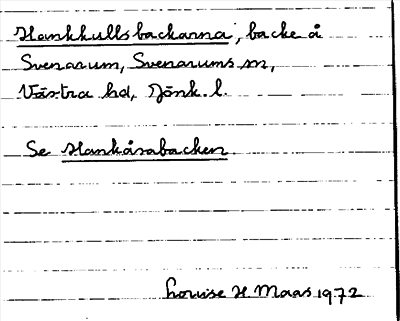 Hankhullsbackarna, backe å
Svenarum, Svenarums sn,
Västra hd, Jönk. l.
Se Hankåsabacken.
Louise H. Maas 1972